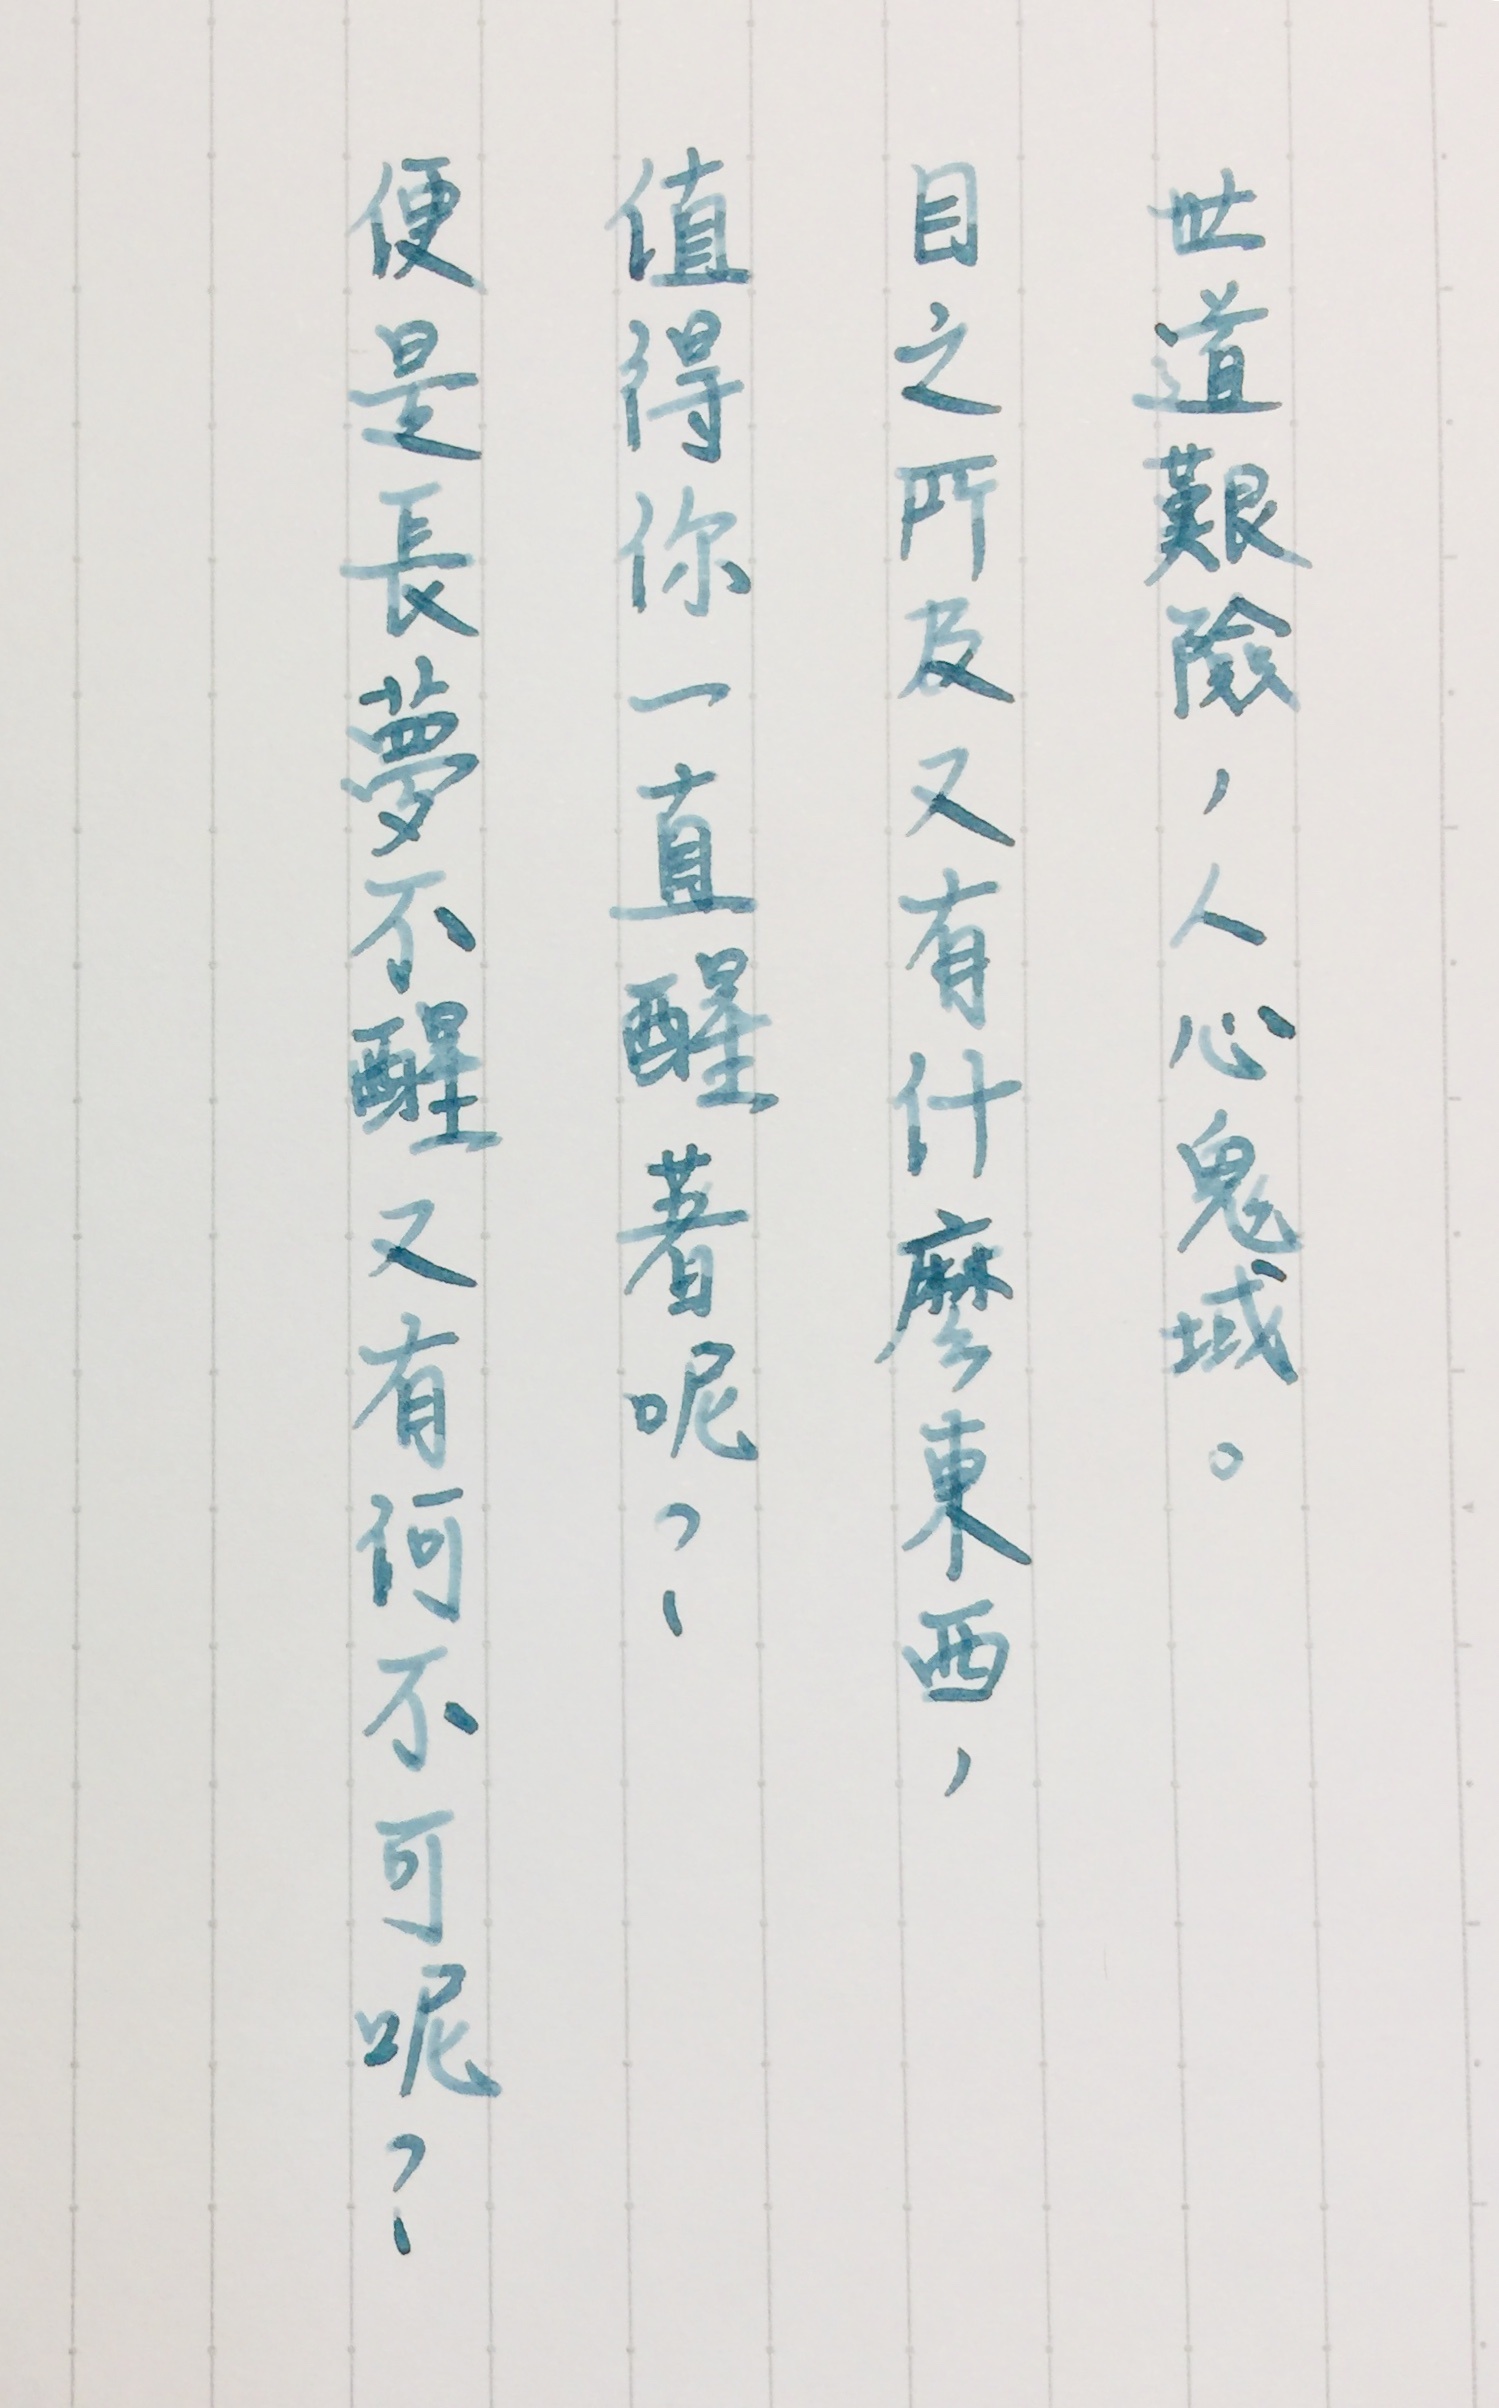 世道艱險，人心鬼域。
目之所及又有什麼東西，
值得你一直醒著呢？
便是長夢不醒又有何不可呢？